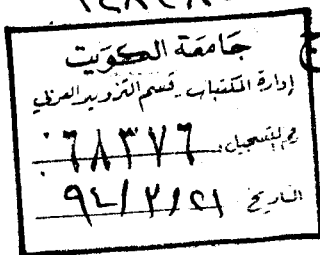 جامعة الكويت
إدارة المكتبات - قسم التزويد العربي
رقم التسجيل ٠٦٨٣٧٦
التاريخ ٩٤/٣/٢١